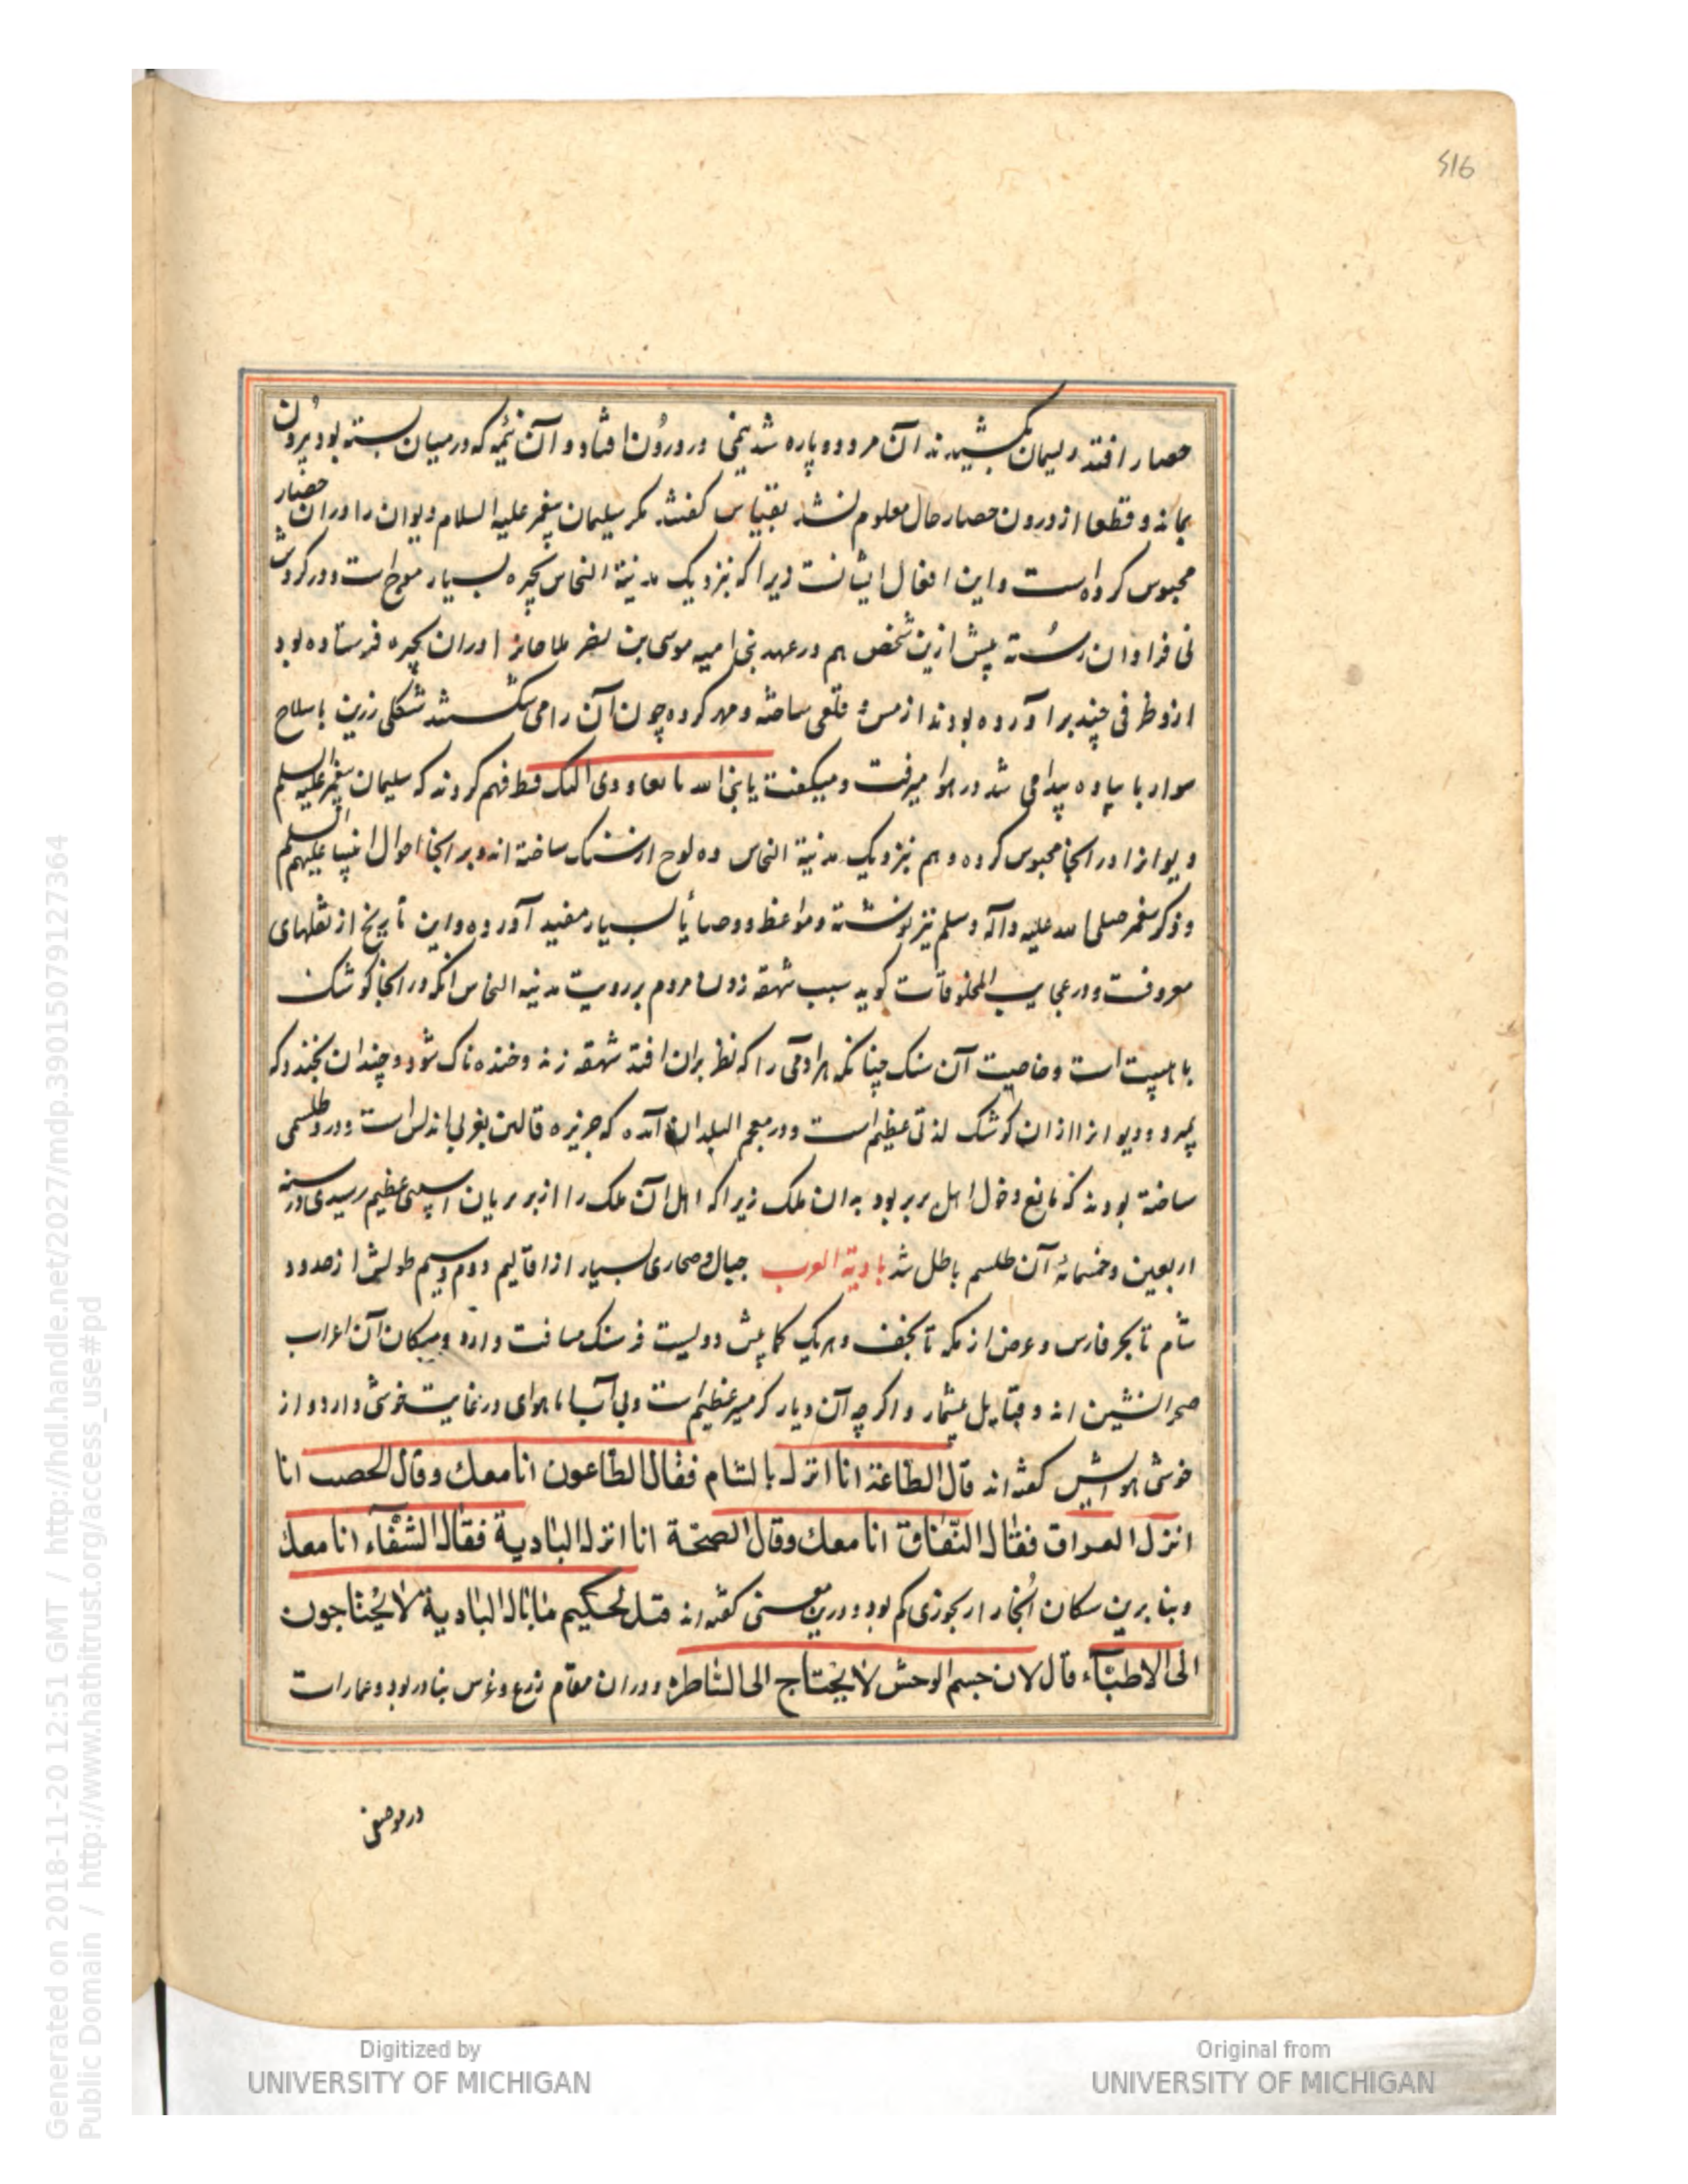 516
حصار افتد ریسمان بکشیدند آن مرد دو پاره شد نیمی در درون افتاد و آن نیمه که در میان بسته بود بیرون
بماند و قطعا از درون حصار حال معلوم نشد بقیاس گفتند مگر سلیمان پیغمبر علیه السلام دیوان را در آن حصار
محبوس کرده است و این افعال ایشانست زیرا که بنزدیک مدینة النحاس بحیره بسیار موج است و در گردش
نی فراوان رسته پیش ازین شخص هم در عهد بنی امیه موسی بن نصر ملاحانرا در آن بحیره فرستاده بود
از و ظرفی چند بر آورده بودند از مس و قلعی ساخته و مهر کرده چون آن را می شکستند شکلی زرین با سلاح
سوار یا پیاده پیدا می شد در هوا میرفت و میگفت یا نبی الله لا نعاودی الیک قط فهم کردند که سلیمان پیغمبر علیه السلم
دیوانرا در آنجا محبوس کرده و هم بنزدیک مدینة النحاس ده لوح از سنگ ساخته اند و بر آنجا احوال انبیا علیهم السلم
و ذکر پیغمبر صلی الله علیه وآله وسلم نیز نوشته و مواعظ و وصایا بسیار مفید آورده و این تاریخ از نقلهای
معروفست و در عجایب المخلوقات گوید سبب شهقه زدن مردم بر رویت مدینه النحاس آنکه در آنجا کوشک
با هیبت است و خاصیت آن سنک چنانکه هر آدمی را که نظر بران افتد شهقه زند و خنده ناک شود و چندان بخندد که
بمیرد و دیوانرا از ان کوشک لذتی عظیم است و در معجم البلدان آمده که جزیره قالس بغربی اندلس است و در و طلسمی
ساخته بودند که مانع دخول اهل بربر بود به آن ملک زیرا که اهل آن ملک را از بربریان آسیبی عظیم رسیدی در سنه
اربعین وخمسمائه آن طلسم باطل شد بادیة العرب جبال و صحاری بسیار از اقالیم دوم و سیم طولش از حدود
شام تا بحر فارس و عرض از مکه تا نجف و هر یک کما بیش دویست فرسنک مسافت دارد و سکان آن اعراب
صحرا نشین اند و قبایل بیشمار و اگر چه آن دیار گرمسیر عظیم است و بی آب اما هوای در غایت خوشی دارد و از
خوشی هواش گفته اند قال الطاعة انا انزل بالشام فقال الطاعون انا معك وقال الخصب انا
انزل العراق فقال النفاق انا معك وقال الصحة انا انزل البادية فقال الشقاء انا معك
و بنا برین سکان آنجا را رنجوری کم بود و درین معنی گفته اند قيل لحكيم ما بال البادية لا يحتاجون
الى الاطباء قال لان جسم الوحش لا يحتاج الى البياطرة و در ان مقام زرع و غرس بنادر بود و عمارات
در موضعی
Digitized by
UNIVERSITY OF MICHIGAN
Original from
UNIVERSITY OF MICHIGAN
Generated on 2018-11-20 12:51 GMT / http://hdl.handle.net/2027/mdp.39015079127364
Public Domain / http://www.hathitrust.org/access_use#pd